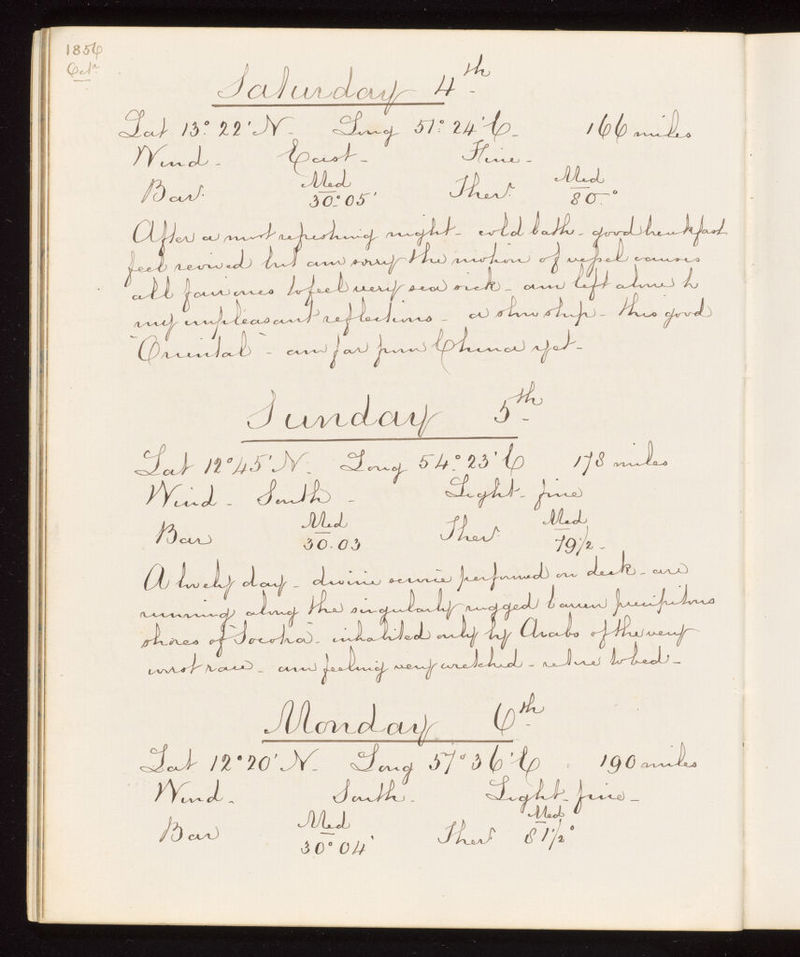 1856
Octr
Saturday 4th
Lat 13° 22' N - Long 51° 24' E - 166 miles
Wind - East - Fine -
Med Med
Bar. 30° 05' Ther. 80°
After a most refreshing night - cold bath - good breakfast
feel revived but am sorry the motion of vessel causes
all fair ones to feel very sea sick - am left alone to
my unpleasant reflections - a slow ship - this good
"Oriental" - am far from China yet -
Sunday 5th
Lat 12° 45' N. Long 54° 23' E 178 miles
Wind - South - Light - fine
Med Med
Bar 30.03 Ther 79 1/2 -
A lovely day - divine service performed on deck - are
running along the singularly rugged barren precipitous
shores of "Socotra" - inhabited only by Arabs of the very
worst race - am feeling very wretched - retire to bed -
Monday 6th
Lat 12° 20' N - Long 57° 36' E 190 miles
Wind - South - Light - fine -
Med Med
Bar 30° 04' Ther 81 1/2°